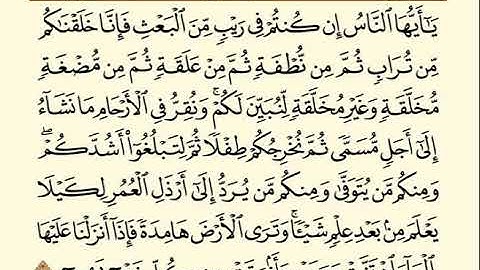 يَـٰٓأَيُّهَا ٱلنَّاسُ إِن كُنتُمۡ فِي رَيۡبٖ مِّنَ ٱلۡبَعۡثِ فَإِنَّا خَلَقۡنَـٰكُم
مِّن تُرَابٖ ثُمَّ مِن نُّطۡفَةٖ ثُمَّ مِنۡ عَلَقَةٖ ثُمَّ مِن مُّضۡغَةٖ
مُّخَلَّقَةٖ وَغَيۡرِ مُخَلَّقَةٖ لِّنُبَيِّنَ لَكُمۡۚ وَنُقِرُّ فِي ٱلۡأَرۡحَامِ مَا نَشَآءُ
إِلَىٰٓ أَجَلٖ مُّسَمّٗى ثُمَّ نُخۡرِجُكُمۡ طِفۡلٗا ثُمَّ لِتَبۡلُغُوٓاْ أَشُدَّكُمۡۖ
وَمِنكُم مَّن يُتَوَفَّىٰ وَمِنكُم مَّن يُرَدُّ إِلَىٰٓ أَرۡذَلِ ٱلۡعُمُرِ لِكَيۡلَا
يَعۡلَمَ مِنۢ بَعۡدِ عِلۡمٖ شَيۡـٔٗاۚ وَتَرَى ٱلۡأَرۡضَ هَامِدَةٗ فَإِذَآ أَنزَلۡنَا عَلَيۡهَا